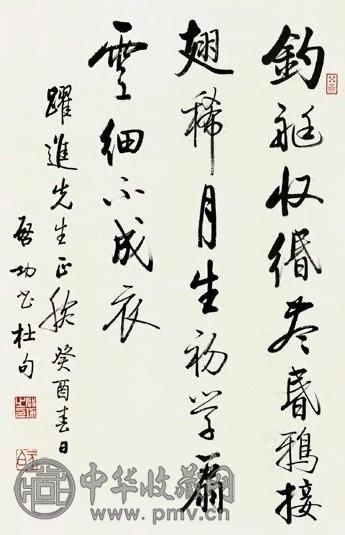 釣艇収緡尽昏鴉接
翅稀月生初学扇
雲細不成衣
躍進先生正腕 癸酉春日
啓功书杜句
中华收藏网
www.pmv.cn